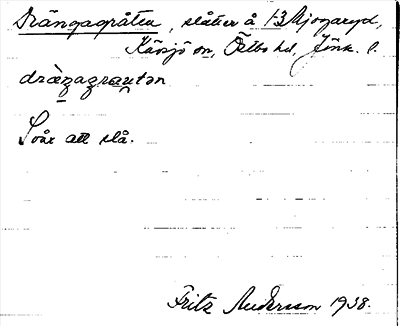 Drängagråten, slåtter å 13 Mjogaryd,
Kävsjö sn, Östbo hd, Jönk. l.
dràŋagrautən
Svår att slå.
Fritz Andersson 1938.